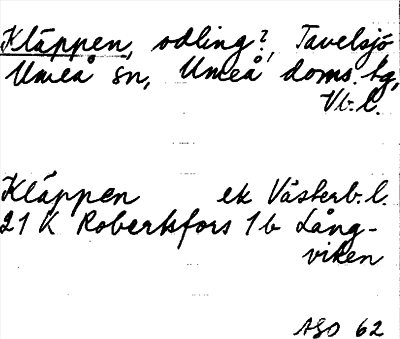 Kläppen, odling?, Tavelsjö
Umeå sn, Umeå doms. tg,
Vb.l.
Kläppen ek Västerb.l.
21 K Robertsfors 1b Lång-
viken
ASO 62